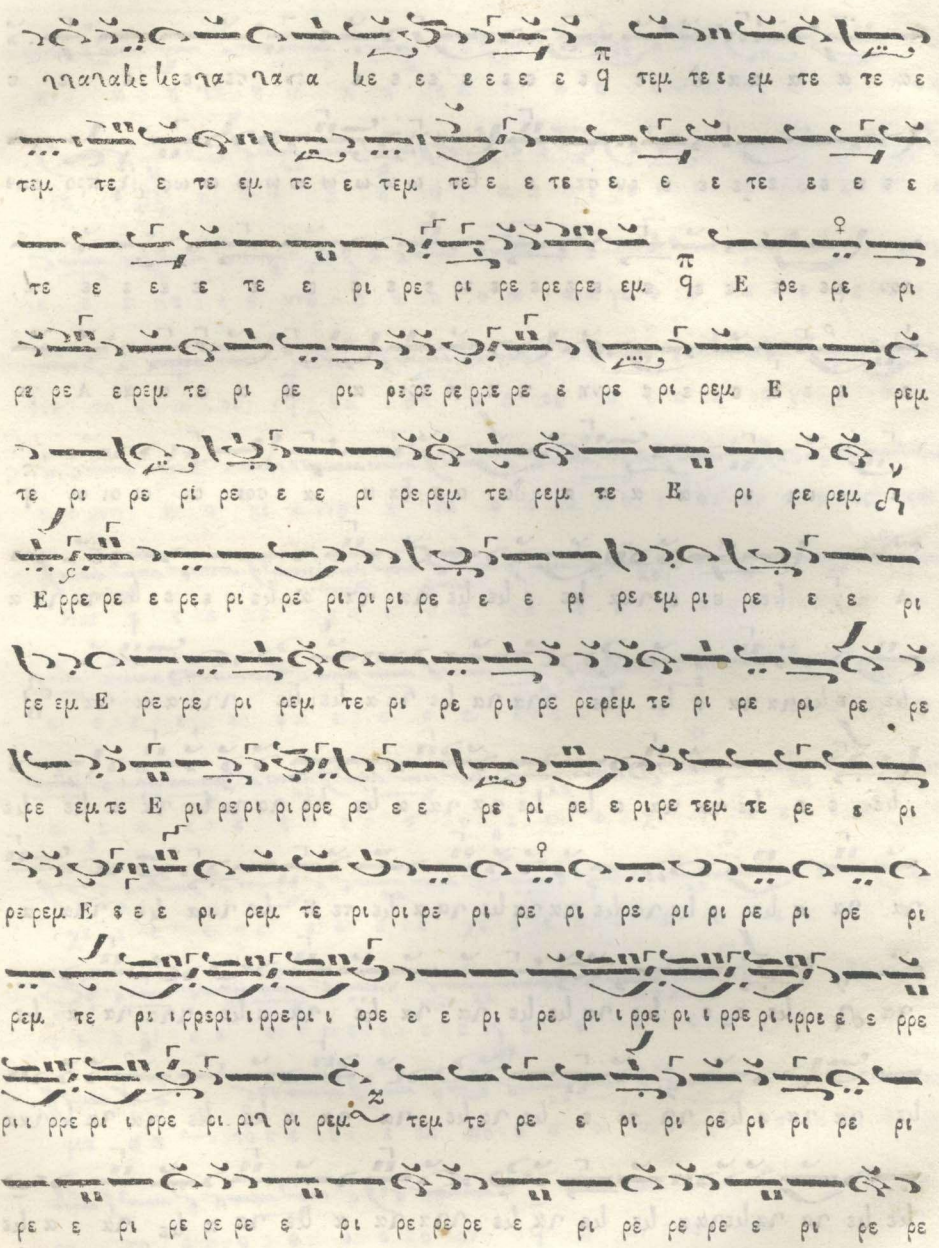 νανανε νε να νανα α νε ε ε ε ε ε ε ε π q τεμ τε ε εμ τε τε ε
τεμ τε ε τε εμ τε ε τεμ τε ε ε τε ε ε ε τε ε ε ε
τε ε ε ε τε ε ε ρι ρε ρι ρε ρε ρε εμ π q Ε ρε ρε ρι
ρε ρε ερεμ τε ρι ρε ρι ρερε ρε ρρε ρε ε ρε ρι ρεμ Ε ρι ρεμ
τε ρι ρε ρι ρε ε ε ρι ρε ρεμ τε ρεμ τε Ε ρι ρε ρεμ ν
Ε ρρε ρε ε ρε ρι ρε ρι ρι ρι ρε ε ε ε ρι ρε εμ ρι ρε ε ε ρι
ρε εμ Ε ρε ρε ρι ρεμ τε ρι ρε ρι ρε ρερεμ τε ρι ρε ρι ρε ρε
ρε εμ τε Ε ρι ρε ρι ρι ρρε ρε ε ε ρε ρι ρε ε ρι ρε τεμ τε ρε ε ρι
ρε ρεμ Ε ε ε ε ρι ρεμ τε ρι ρι ρε ρι ρε ρι ρε ρι ρι ρε ρι ρε ρι
ρεμ τε ρι ι ρρε ρι ι ρρε ρι ι ρρε ε ε ρι ρε ρι ρι ι ρρε ρι ι ρρε ρι ι ρρε ε ε ρρε
ρι ι ρρε ρι ι ρρε ρι ρι ρι ρεμ z τεμ τε ρε ε ρι ρι ρε ρι ρι ρε ρι
ρε ε ρι ρε ρε ρε ε ρι ρε ρε ρε ε ρι ρε ρε ρε ε ρι ρε ρε